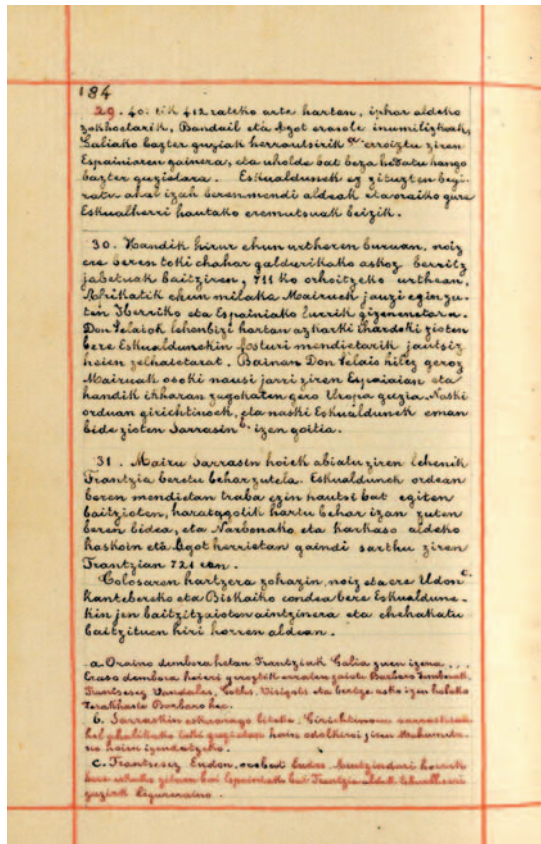 184
29. 40: tik 412 rateko arte hartan, iphar aldeko
zokhoetarik, Bandail eta Agot erasole inumilizkak,
Galiako bazter guziak herrautsirik a. erroiztu ziren
Espainiaren gainera, eta uholde bat beza hedatu hango
bazter guzietara. Eskualdunek ez zituzten begi-
ratu ahal izan beren mendi aldeak eta oraiko gure
Eskualherri hautako eremutsuak beizik.
30. Handik hirur ehun urtheren buruan, noiz
ere beren toki chahar galdurikako askoz berritz
jabetuak baitziren, 711 ko orhoitzeko urthean,
Afrikatik ehun milaka Mairuek jauzi egin zu-
ten Iberriko eta Espainiako lurrik gizenenetara.
Don Pelaiok lehenbizi hartan azkarki ihardoki zioten
bere Eskualdunekin Asturi mendietarik jautsiz
heien zelhaietarat. Bainan Don Pelaio hilez geroz
Mairuak osoki nausi jarri ziren Espainian eta
handik ikharan zagokaten gero Uropa guzia. Naski
orduan girichtinoek, eta naski Eskualdunek eman
bide zioten Sarrasin b. izen goitia.
31. Mairu Sarrasin hoiek abiatu ziren lehenik
Frantzia beretu behar zutela. Eskualdunek ordean
beren mendietan traba ezin hautsi bat egiten
baitzioten, haratagotik hartu behar izan zuten
beren bidea, eta Narbonako eta harkaso aldeko
kaskoin eta Agot herrietan gaindi sarthu ziren
Frantzian 721 ean.
Tolosaren hartzera zohazin, noiz eta ere Udon c.
kantebereko eta Biskaiko condea bere Eskualdune-
kin jen baitzitzaioten aintzinera eta chehakatu
baitzituen hiri horren aldean.
a. Oraino dembora hetan Frantziak Galia zuen izena...
Eraso dembora heieri geroztik erraten zaiote Barbaro dembrak,
Frantsesez Vandales, Goths, Visigots eta bertze asko izen holako
Barbaro hec.
b. Sarraskin
hoin izendatzeko.
c. Frantsesez Eudon, Eudes
guziek